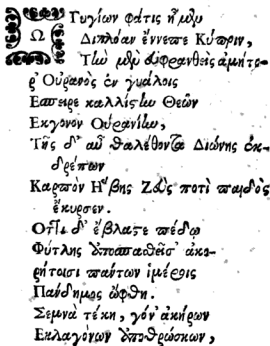 Ω Γυγίων φάτις ἢ μὲν
Διπλόαν ἔννεπε Κύπριν,
Τὼ μὲν εὐφρανθεὶς ἀμήτο-
ρ' Οὐρανὸς ἐν γυάλοις
Εσπειρε καλλίςἰω Θεῶν
Εκγονον Οὐρανίἰω,
Τῆς δ' αὖ θαλέθοντα Διώνης ἐκ-
δρέπων
Καρπὸν Ἥβης Ζδὺς ποτὶ παιδὸς
ἔκυρσεν.
δ' ἔβλαςε πέδῳ
Φύτλης ἀκο-
ρήτοισι πάντων ἱμέροις
Πανδημος ὤφθη.
Σεμνὰ τέκη, γόν' ἀκήρων
Εκλαγόνων ὑποθρώσκων,